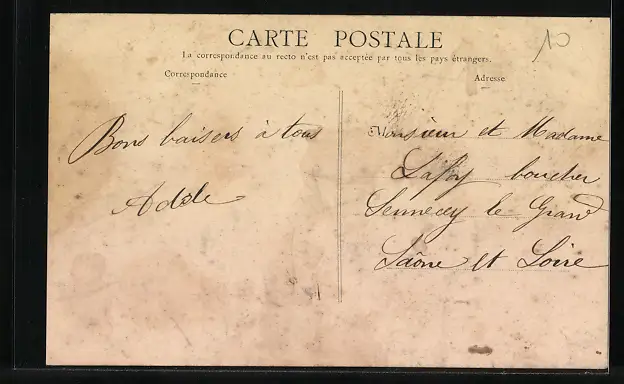 10
CARTE POSTALE
La correspondance au recto n'est pas acceptée par tous les pays étrangers.
Correspondance
Adresse
Bons baisers à tous
Adèle
Monsieur et Madame
Lafoy boucher
Sennecey le Grand
Saône et Loire